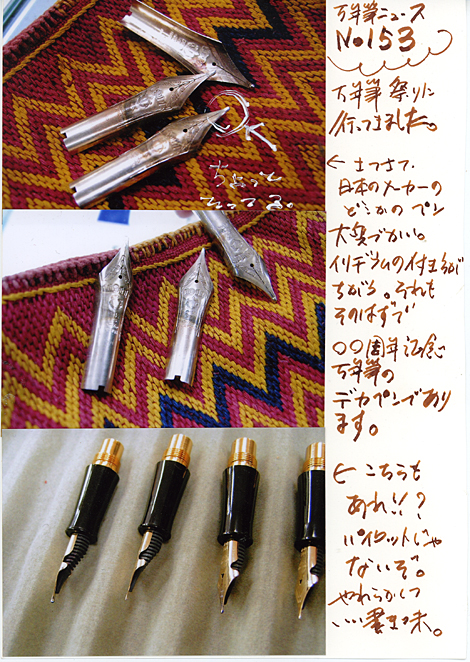 万年筆ニュース
No.153
万年筆祭りに
行ってきました。
← さてさて、
日本のメーカーの
どこかのペン
大奥づかい。
イリヂウムの付き方が
ちがう。それも
そのはずで
〇〇周年記念
万年筆の
デカペンであり
ます。
← こちらも
あれ!!?
パイロットじゃ
ないぞ。
やわらかくて
いい書き味。
OK
ちょっと